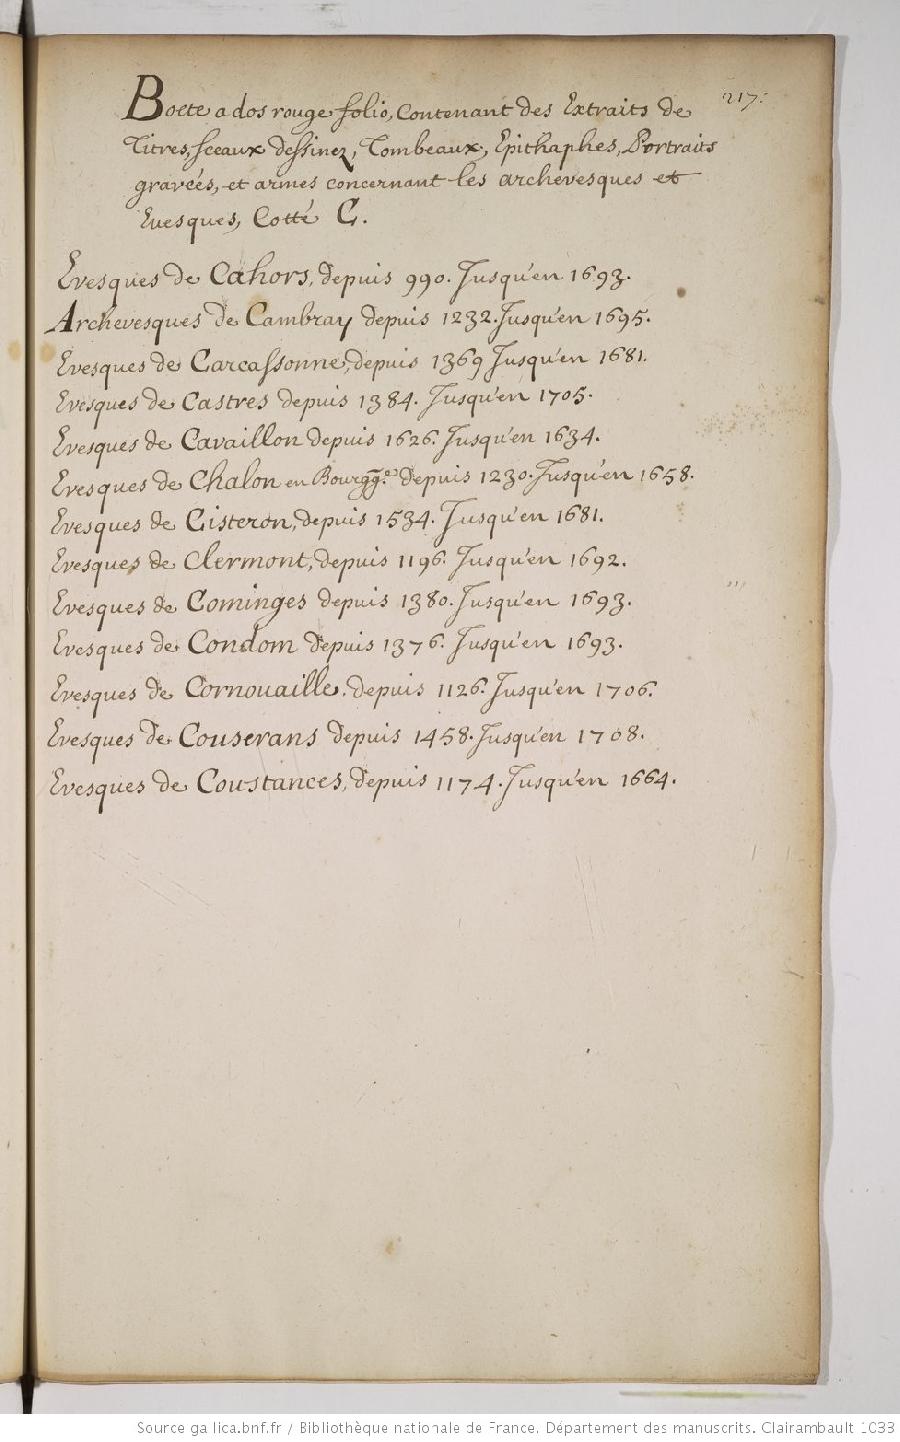 217.
Boete a dos rouge folio, Contenant des Extraits de
Titres, sceaux dessinez, Tombeaux, Epithaphes, Portraits
gravées, et armes concernant les archevesques et
Evesques, Cotté C.
Evesques de Cahors, depuis 990. Jusqu'en 1693.
Archevesques de Cambray depuis 1232. Jusqu'en 1695.
Evesques de Carcassonne, depuis 1369 Jusqu'en 1681.
Evesques de Castres depuis 1384. Jusqu'en 1705.
Evesques de Cavaillon depuis 1626. Jusqu'en 1634.
Evesques de Chalon en Bourgg.e depuis 1230. Jusqu'en 1658.
Evesques de Cisteron, depuis 1534. Jusqu'en 1681.
Evesques de Clermont, depuis 1196. Jusqu'en 1692.
Evesques de Cominges depuis 1380. Jusqu'en 1693.
Evesques de Condom depuis 1376. Jusqu'en 1693.
Evesques de Cornouaille, depuis 1126. Jusqu'en 1706.
Evesques de Couserans depuis 1458. Jusqu'en 1708.
Evesques de Coustances, depuis 1174. Jusqu'en 1664.
Source gallica.bnf.fr / Bibliothèque nationale de France. Département des manuscrits. Clairambault 1033